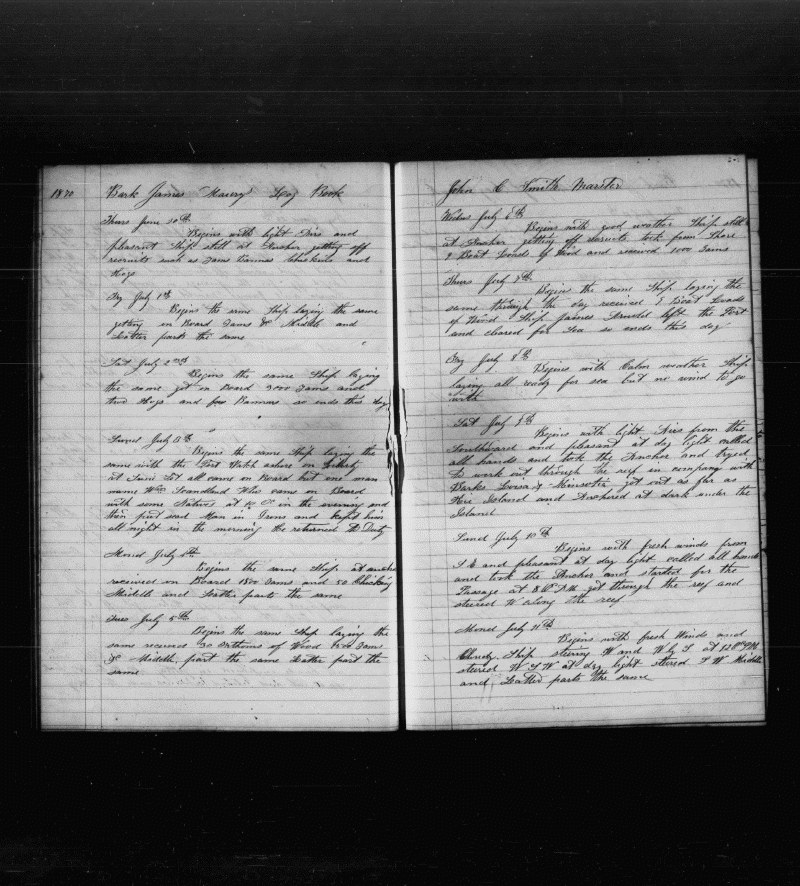 1870 Bark James Maury Log Book
Thurs June 30th
Begins with light Airs and
pleasant Ship still at Anchor getting off
recruits such as Yams Bananas Chickens and
Hogs
Fry July 1th
Begins the same Ship laying the same
getting in Board Yams &c Middle and
Latter parts the same
Sat July 2nd
Begins the same Ship laying
the same got on Board 3000 Yams and
two Hogs and few Bannas so ends this day
Sund July 3th
Begins the same Ship laying the
same with the Port Watch ashore on Liberty
at Suni Set all came on Board but one man
name Wm Scandland Who came on Board
with some Natives at 10 Oc in the evening and
then put said Man in Irons and kept him
all night in the morning He returned to Duty
Mond July 4th
Begins the same Ship at anchor
received on Board 1800 Yams and 50 Chickins
Middle and Latter parts the same
Tues July 5th
Begins the same Ship laying the
same received 30 Fathoms of Wood 1500 Yams
&c Middle part the same Latter part the
same
John C Smith Marster
Wedns July 6th
Begins with good weather Ship still
at Anchor getting off recruits took from Shore
2 Boat Loads of Wood and received 1000 Yams
Thurs July 7th
Begins the same Ship laying the
same through the day received 2 Boat Loads
of Wood Ship James Arnold left the Port
and cleared for Sea so ends this day
Fry July 8th
Begins with Calm weather Ship
laying all ready for sea but no wind to go
with
Sat July 9th
Begins with light Airs from the
Southward and pleasant at day light called
all hands and took the Anchor and
to work out through the reef in company with
Barks Louisa & Minisota got out as far as
Hie Island and Anchored at dark under the
Island
Sund July 10th
Begins with fresh winds from
S E and pleasant at day light called all hands
and took the Anchor and started for the
Passage at 8 Oc A M got through the reef and
steered W along the reef
Mond July 11th
Begins with fresh Winds and
Cloudy Ship steering W and W by S at 12 Oc P M
steered W S W at day light steered S W Middle
and Latter parts the same